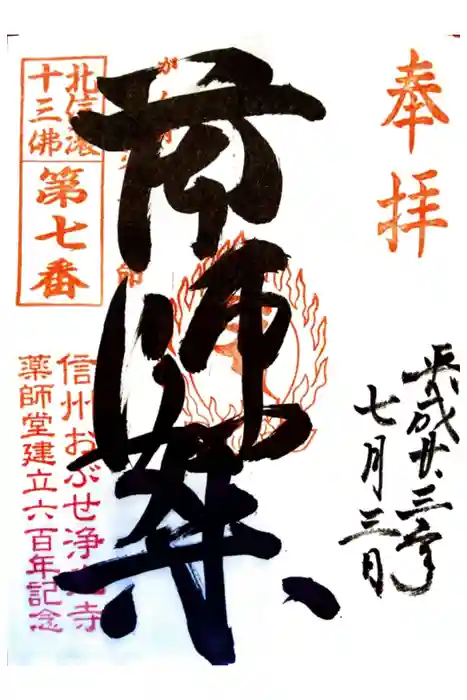 奉拝
平成廿三年
七月三日
師
北信濃
十三佛
第七番
信州おぶせ浄光寺
薬師堂建立六百年記念